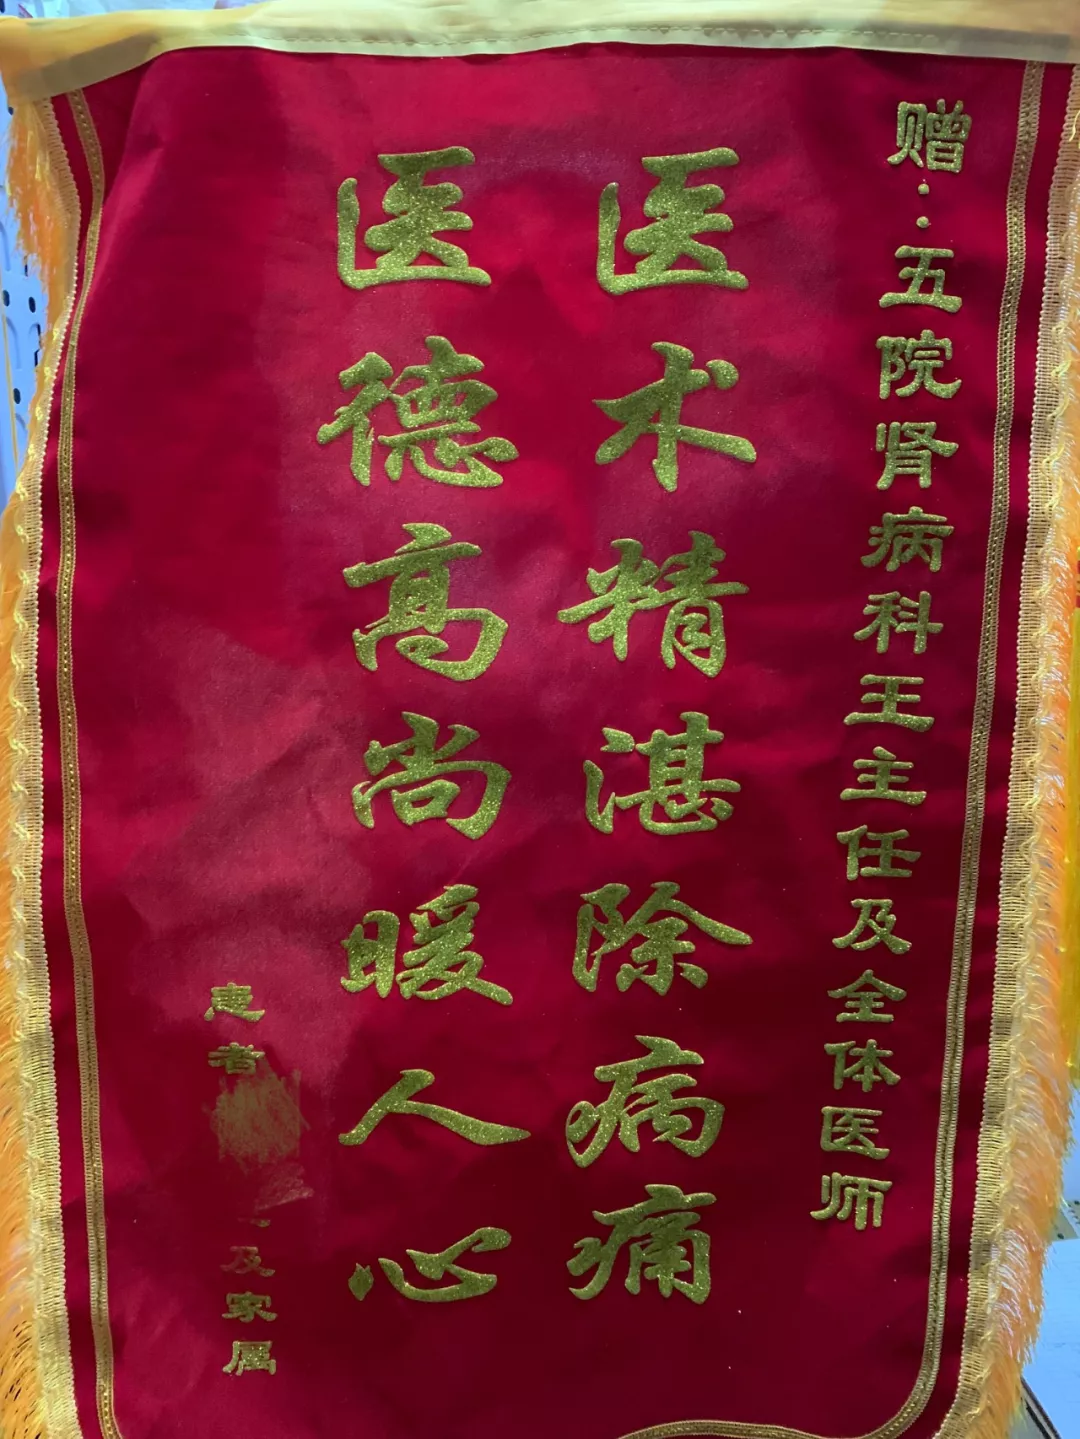 赠：五院肾病科王主任及全体医师
医术精湛除病痛
医德高尚暖人心
患者
及家属